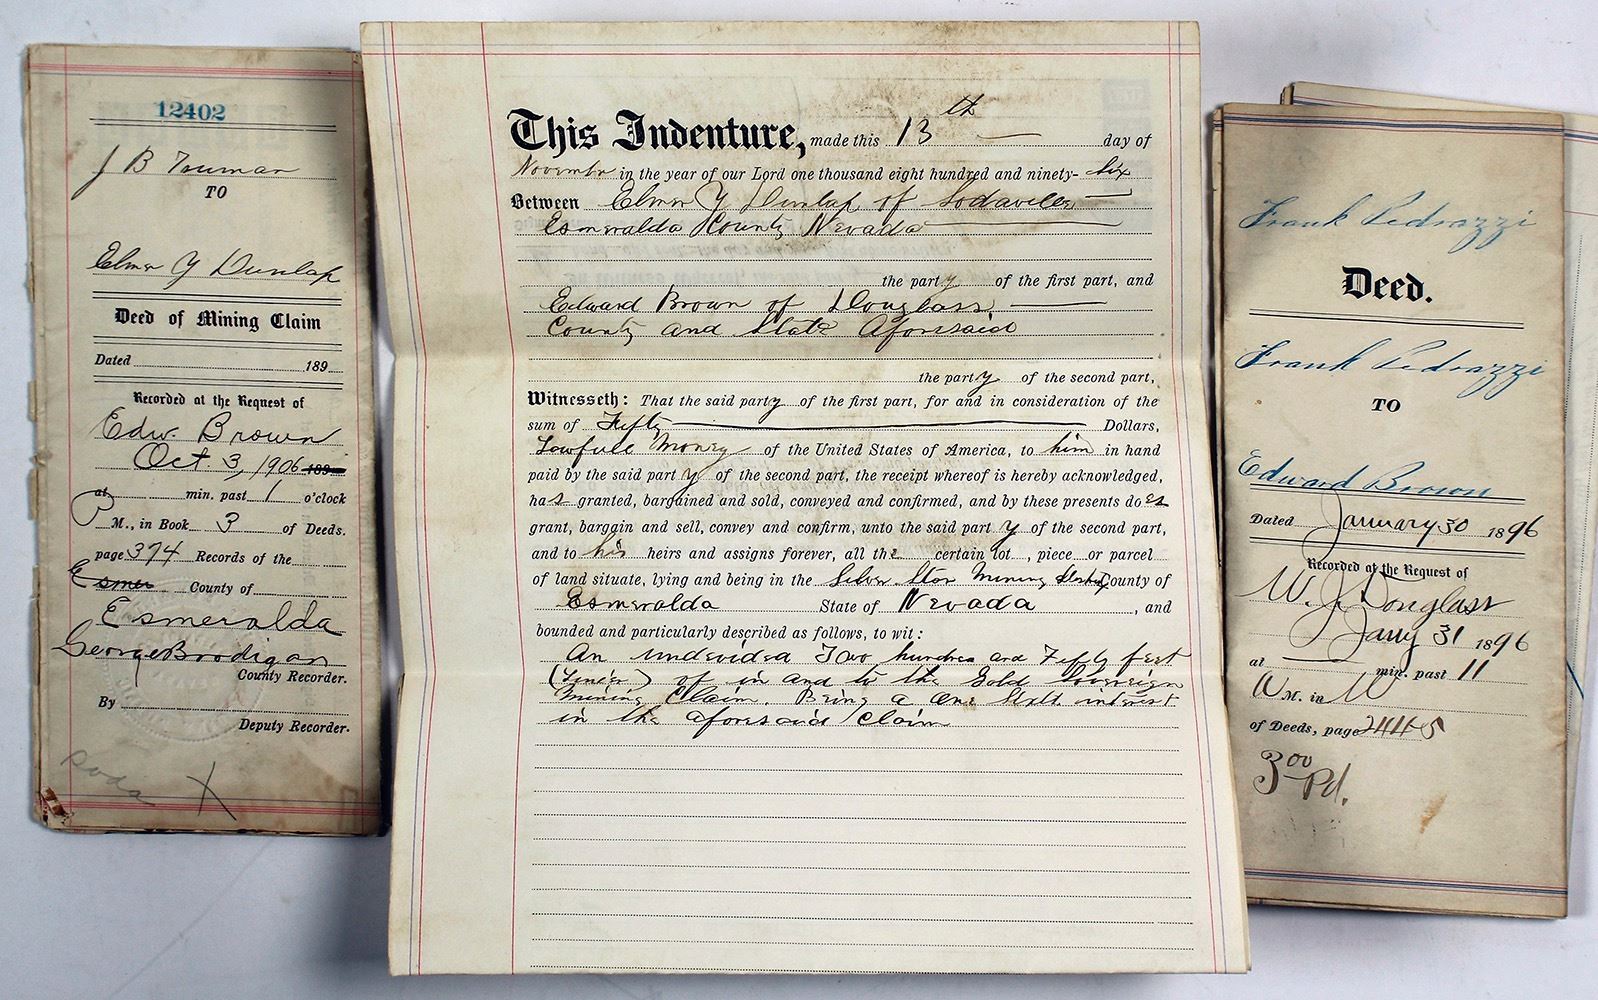 12402
J B Truman
TO
Elmer Y Dunlap
Deed of Mining Claim
Dated 189
Recorded at the Request of
Edw. Brown
Oct. 3, 1906 189
at min. past 1 o'clock
P M., in Book 3 of Deeds.
page 374 Records of the
Esmer County of
Esmeralda
George Brodigan
County Recorder.
By
Deputy Recorder.
Soda X
This Indenture, made this 13th day of
Novembr in the year of our Lord one thousand eight hundred and ninety- six
Between Elmer Y Dunlap of Sodaville
Esmeralda County Nevada
the party of the first part, and
Edward Brown of Douglass
County and State Aforesaid
the party of the second part,
Witnesseth: That the said party of the first part, for and in consideration of the
sum of Fifty Dollars,
Lawfull Money of the United States of America, to him in hand
paid by the said party of the second part, the receipt whereof is hereby acknowledged,
has granted, bargained and sold, conveyed and confirmed, and by these presents does
grant, bargain and sell, convey and confirm, unto the said party of the second part,
and to his heirs and assigns forever, all the certain lot, piece or parcel
of land situate, lying and being in the Silver Star Mining County of
Esmeralda State of Nevada, and
bounded and particularly described as follows, to wit:
An undevided Two hundred and Fifty feet
(Linear) of in and to the Gold Sovereign
Mining Claim. Being a one Sixth interest
in the aforesaid Claim
Frank Pedrazzi
Deed.
Frank Pedrazzi
TO
Edward Brown
Dated January 30 1896
Recorded at the Request of
W. J. Douglass
Jany 31 1896
at min. past 11
M. in W
of Deeds, page 244-5
3 00 Pd.